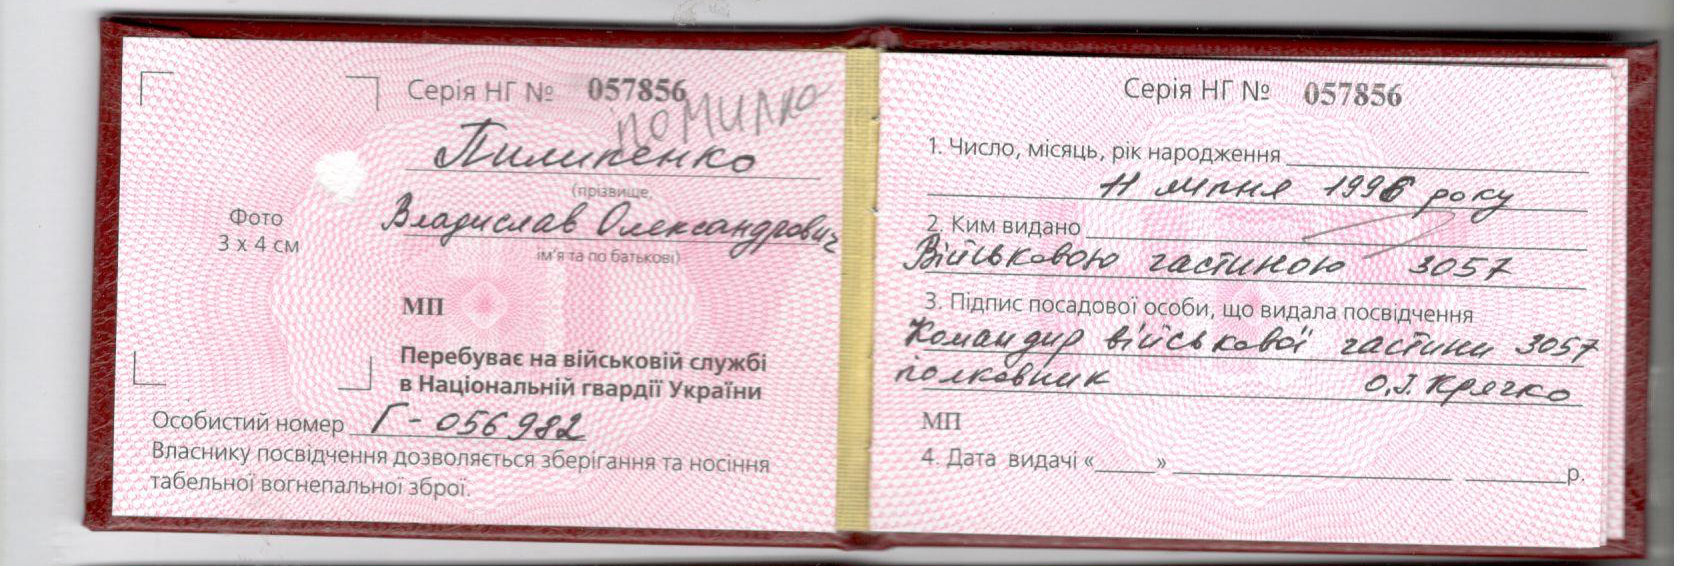 Серія НГ № 057856
помилка
Пилипенко
(прізвище,
Владислав Олександрович
ім'я та по батькові)
Фото
3 х 4 см
МП
Перебуває на військовій службі
в Національній гвардії України
Особистий номер Г - 056982
Власнику посвідчення дозволяється зберігання та носіння
табельної вогнепальної зброї.
Серія НГ № 057856
1. Число, місяць, рік народження
11 липня 1996 року
2. Ким видано
Військовою частиною 3057
3. Підпис посадової особи, що видала посвідчення
Командир військової частини 3057
полковник О.І. Крячко
МП
4. Дата видачі « » р.